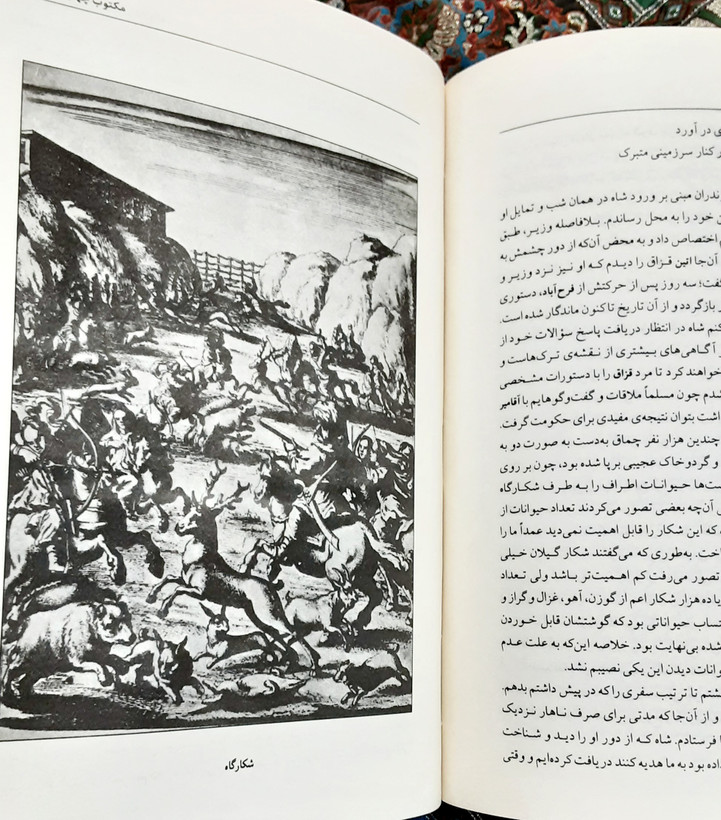 مکتوب
شکارگاه
ی در آورد
ر کنار سرزمینی متبرک
ندران مبنی بر ورود شاه در همان شب و تمایل او
ن خود را به محل رساندم. بلافاصله وزیر، طبق
اختصاص داد و به محض آن‌که از دور چشمش به
آن‌جا اتین قزاق را دیدم که او نیز نزد وزیر و
گفت؛ سه روز پس از حرکتش از فرح‌آباد، دستوری
بازگردد و از آن تاریخ تاکنون ماندگار شده است.
کنم شاه در انتظار دریافت پاسخ سؤالات خود از
آگاهی‌های بیشتری از نقشه‌ی ترک‌هاست و
خواهند کرد تا مرد قزاق را با دستورات مشخصی
شدم چون مسلماً ملاقات و گفت‌وگوهایم با آقامیر
اشت بتوان نتیجه‌ی مفیدی برای حکومت گرفت.
چندین هزار نفر چماق به‌دست به صورت دو به
و گردوخاک عجیبی برپا شده بود، چون بر روی
ست‌ها حیوانات اطراف را به طرف شکارگاه
آن‌چه بعضی تصور می‌کردند تعداد حیوانات از
که این شکار را قابل اهمیت نمی‌دید عمداً ما را
اخت. به‌طوری که می‌گفتند شکار گیلان خیلی
تصور می‌رفت کم اهمیت‌تر باشد ولی تعداد
با ده هزار شکار اعم از گوزن، آهو، غزال و گراز و
تساب حیواناتی بود که گوشتشان قابل خوردن
شده بی‌نهایت بود. خلاصه این‌که به علت عدم
وانات دیدن این یکی نصیبم نشد.
شتم تا ترتیب سفری را که در پیش داشتم بدهم.
و از آن‌جا که مدتی برای صرف ناهار نزدیک
فرستادم. شاه که از دور او را دید و شناخت
داده بود به ما هدیه کنند دریافت کرده‌ایم و وقتی